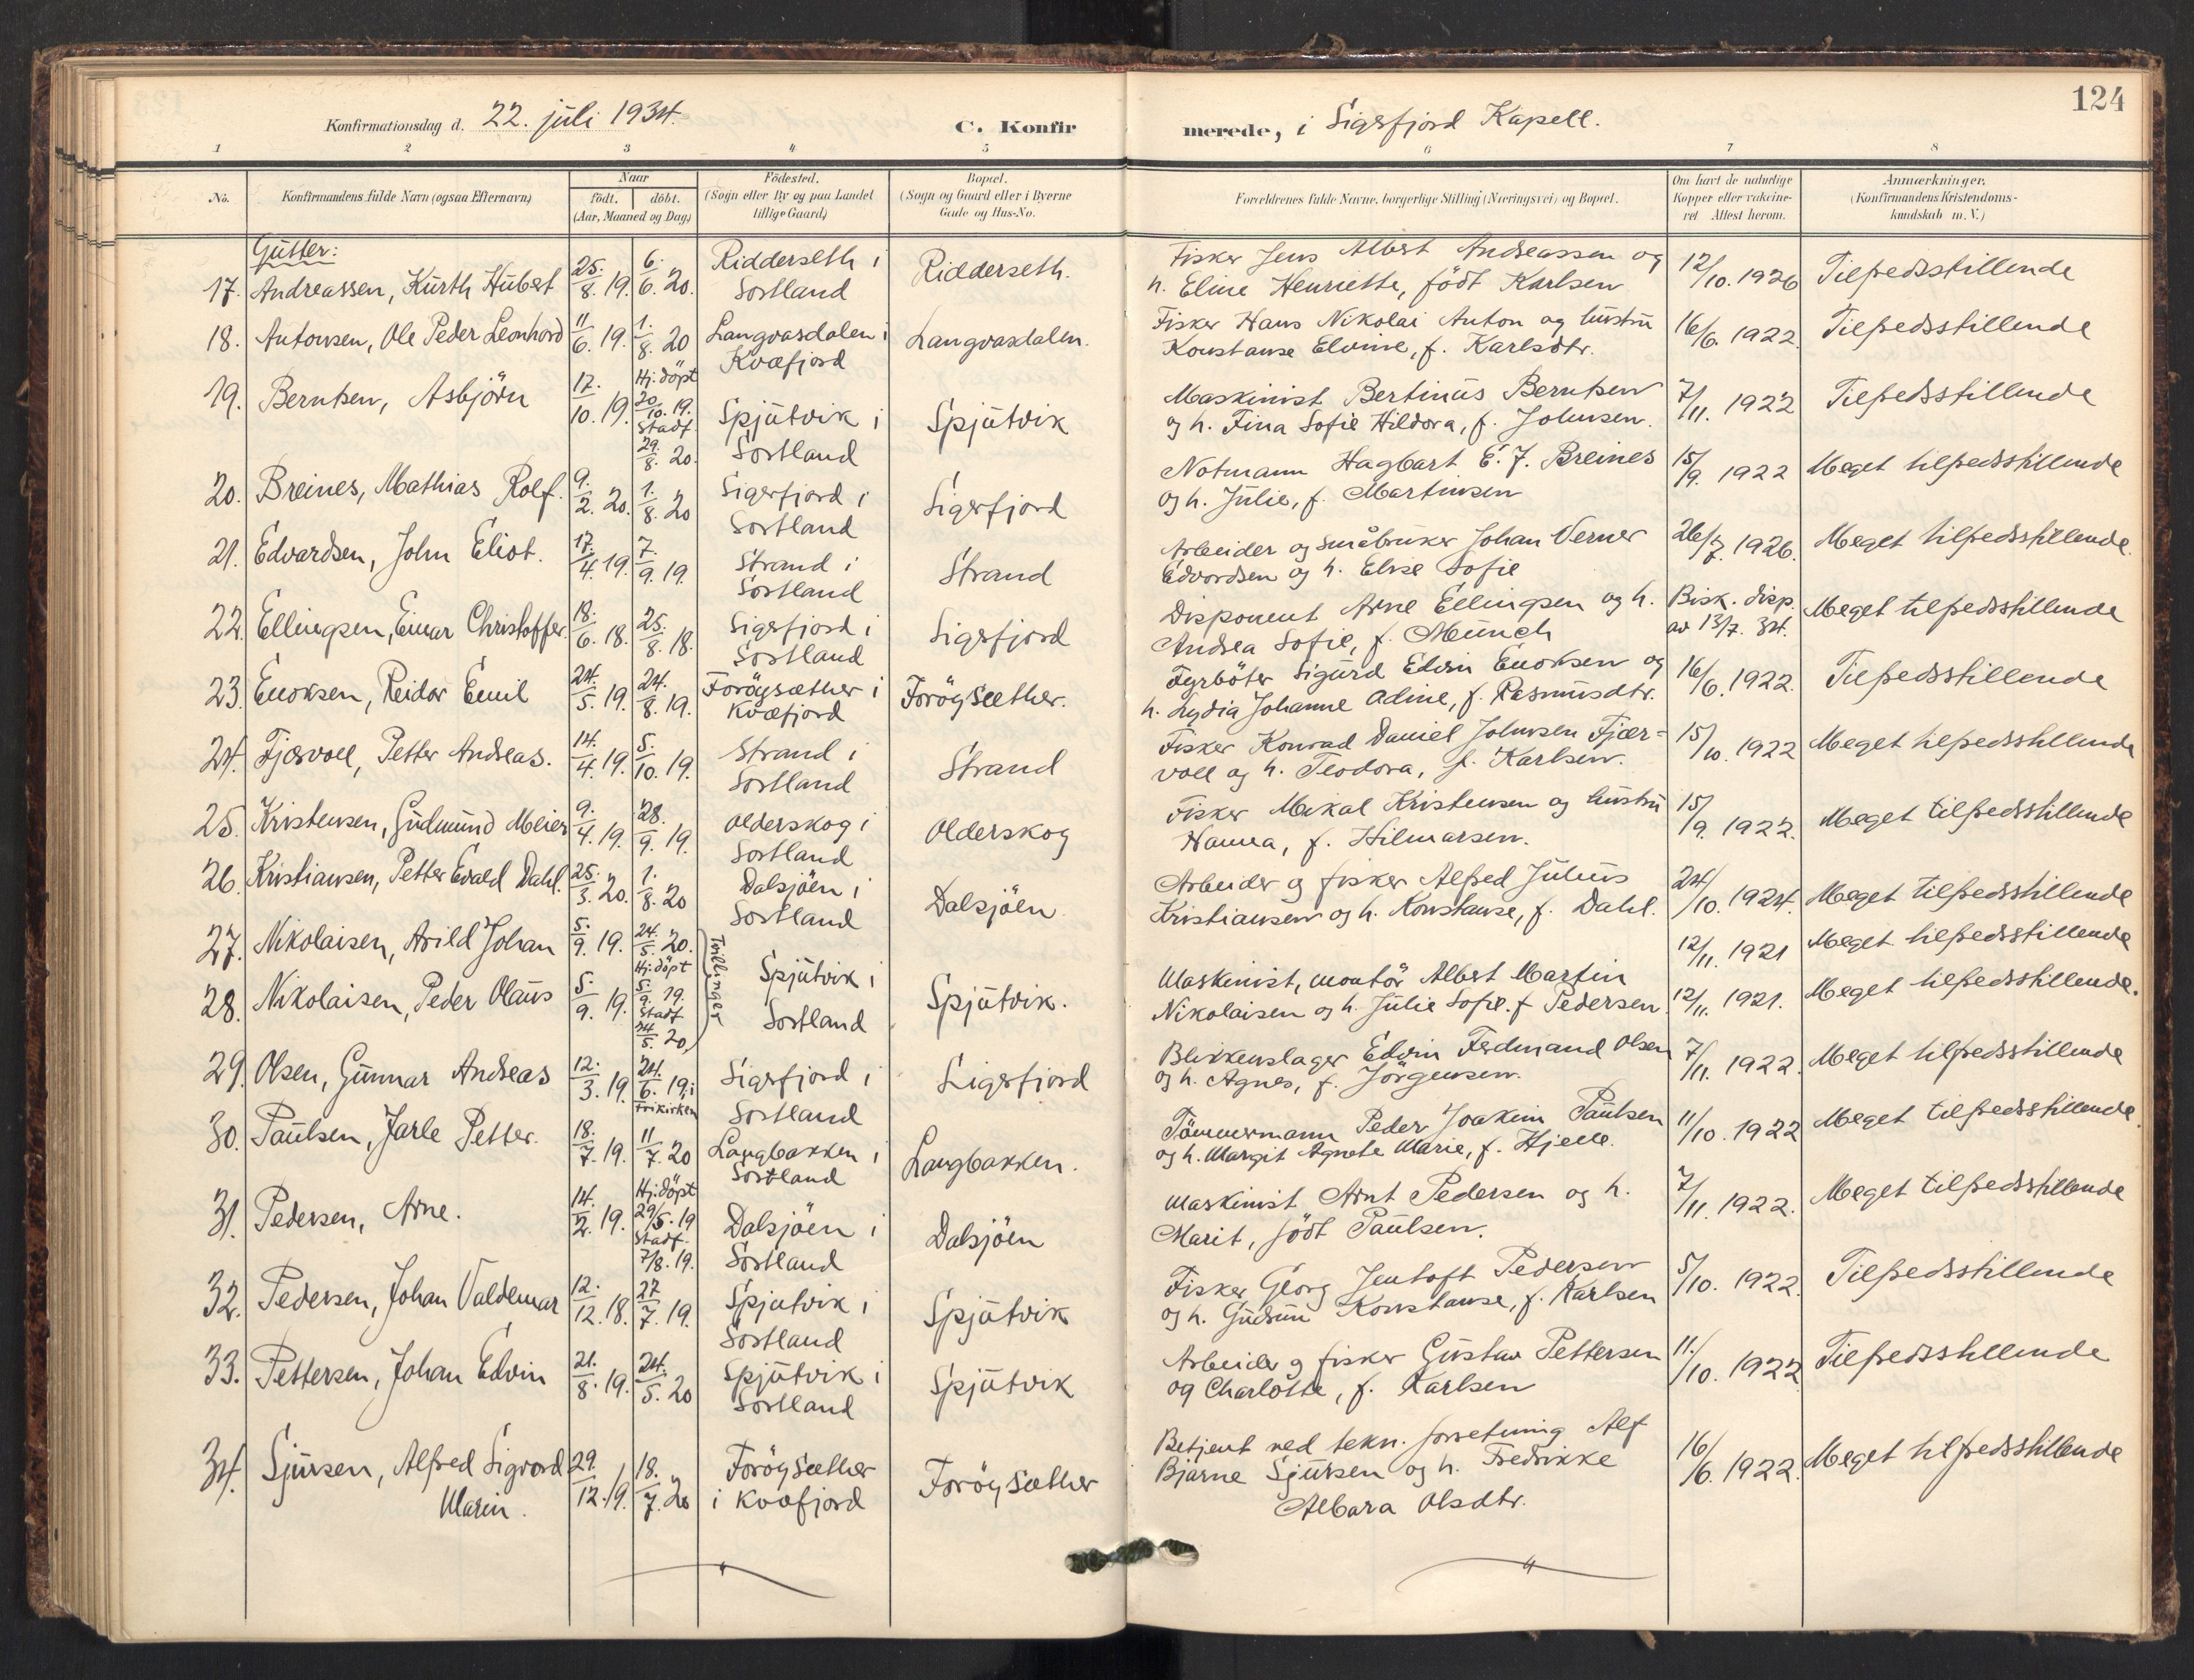 124
Konfirmationsdag d. 22. juli 1934. C. Konfirmerede, i Sigerfjord Kapell.
1 2 3 4 5 6 7 8
No. Konfirmandens fulde Navn (ogsaa Efternavn) Naar født. døbt. (Aar, Maaned og Dag) Fødested. (Sogn eller By og paa Landet tillige Gaard) Bopæl. (Sogn og Gaard eller i Byerne Gade og Hus-No. Forældrenes fulde Navne, borgerlige Stilling (Næringsvei) og Bopæl. Om havt de naturlige Kopper eller vakcineret Attest herom. Anmærkninger. (Konfirmandens Kristendomskundskab m. V.)
Gutter:
17. Andreassen, Kurth Hubert 25/8. 19. 6./6. 20. Ridderseth i Sortland Ridderseth. Fisker Jens Albert Andreassen og h. Eline Henriette, født Karlsen 12/10. 1926 Tilfredsstillende
18. Antonsen, Ole Peder Leonhard 11/6. 19. 1./8. 20 Langvasdalen i Kvæfjord Langvasdalen. Fisker Hans Nikolai Anton og hustru Konstanse Elvine, f. Karlsdtr. 16/6. 1922. Tilfredsstillende
19. Berntsen, Asbjörn 17./10. 19. Hj. döpt 20/10. 19. Stadf. 29./8. 20. Spjutvik i Sortland Spjutvik Maskinist Bertinus Berntsen og h. Fina Sofie Hildora, f. Johnsen. 7/11. 1922 Tilfredsstillende
20. Breines, Mathias Rolf. 9./2. 20. 1./8. 20 Sigerfjord i Sortland Sigerfjord Notmann Hagbart E. J. Breines og h. Julie, f. Martinsen 15/9. 1922 Meget tilfredsstillende
21. Edvardsen, John Eliot. 17./4. 19. 7./9. 19. Strand i Sortland Strand Arbeider og småbruker Johan Verner Edvardsen og h. Elise Sofie 26/7. 1926. Meget tilfredsstillende.
22. Ellingsen, Einar Christoffer 18./6. 18. 25./8. 18. Sigerfjord i Sortland Sigerfjord Disponent Arne Ellingsen og h. Andrea Sofie, f. Münch Bisk. disp. av 13/7. 34. Meget tilfredsstillende
23. Enoksen, Reidar Emil 24./5. 19. 24./8. 19. Foröysæther i Kvæfjord Foröysæther. Fyrböter Sigurd Edvin Enoksen og h. Lydia Johanne Adine, f. Rasmusdtr. 16/6. 1922. Tilfredsstillende
24. Fjærvoll, Petter Andreas. 14./4. 19. 5./10. 19. Strand i Sortland Strand Fisker Konrad Daniel Johnsen Fjærvoll og h. Teodora, f. Karlsen. 15/10. 1922 Meget tilfredsstillende
25. Kristensen, Gudmund Meier 9./4. 19. 28./9. 19. Olderskog i Sortland Olderskog Fisker Mikal Kristensen og hustru Hanna, f. Hilmarsen. 15/9. 1922. Meget tilfredsstillende
26. Kristiansen, Petter Evald Dahl. 25./3. 20. 1./8. 20 Dalsjöen i Sortland Dalsjöen Arbeider og fisker Alfred Julius Kristiansen og h. Konstanse, f. Dahl. 24/10. 1924. Meget tilfredsstillende
27. Nikolaisen, Arild Johan 5./9. 19. 24./5. 20. Tvillinger Spjutvik i Sortland Spjutvik. Maskinist, montör Albert Martin Nikolaisen og h. Julie Sofie. f Pedersen. 12/11. 1921 Meget tilfredsstillende
28. Nikolaisen, Peder Olaus 5./9. 19. Hj. döpt 5./9. 19. Stadf. 24/5. 20. 12/11. 1921. Meget tilfredsstillende.
29. Olsen, Gunnar Andreas 12./3. 19. 24./6. 19. i Frikirken Sigerfjord i Sortland Sigerfjord Blikkenslager Edvin Ferdinand Olsen og h. Agnes, f. Jörgensen. 7/11. 1922. Meget tilfredsstillende
30. Paulsen, Jarle Petter. 18./7. 19. 11/7. 20 Langbakken i Sortland Langbakken. Tömmermann Peder Joakim Paulsen og h. Margit Agnete Marie, f. Hjelle. 11/10. 1922 Meget tilfredsstillende.
31. Pedersen, Arne. 14./2. 19. Hj. döpt 29/5. 19 Stadf. 7/8. 19. Dalsjöen i Sortland Dalsjöen Maskinist Arnt Pedersen og h. Marit, född Paulsen. 7/11. 1922. Meget tilfredsstillende
32. Pedersen, Johan Valdemar 12./12. 18. 27/7. 19. Spjutvik i Sortland Spjutvik Fisker Georg Jentoft Pedersen og h. Gudrun Konstanse, f. Karlsen 5/10. 1922. Tilfredsstillende
33. Pettersen, Johan Edvin 21./8. 19. 24./5. 20 Spjutvik i Sortland Spjutvik Arbeider og fisker Gustav Pettersen og Charlotte, f. Karlsen 11./10. 1922 Tilfredsstillende
34. Sjursen, Alfred Sigvard Marin. 29./12. 19. 18./7. 20 Foröysæther i Kvæfjord Foröysæther Betjent ved tekn. forretning Alf Bjarne Sjursen og h. Fredrikke Albara Olsdtr. 16/6. 1922. Meget tilfredsstillende